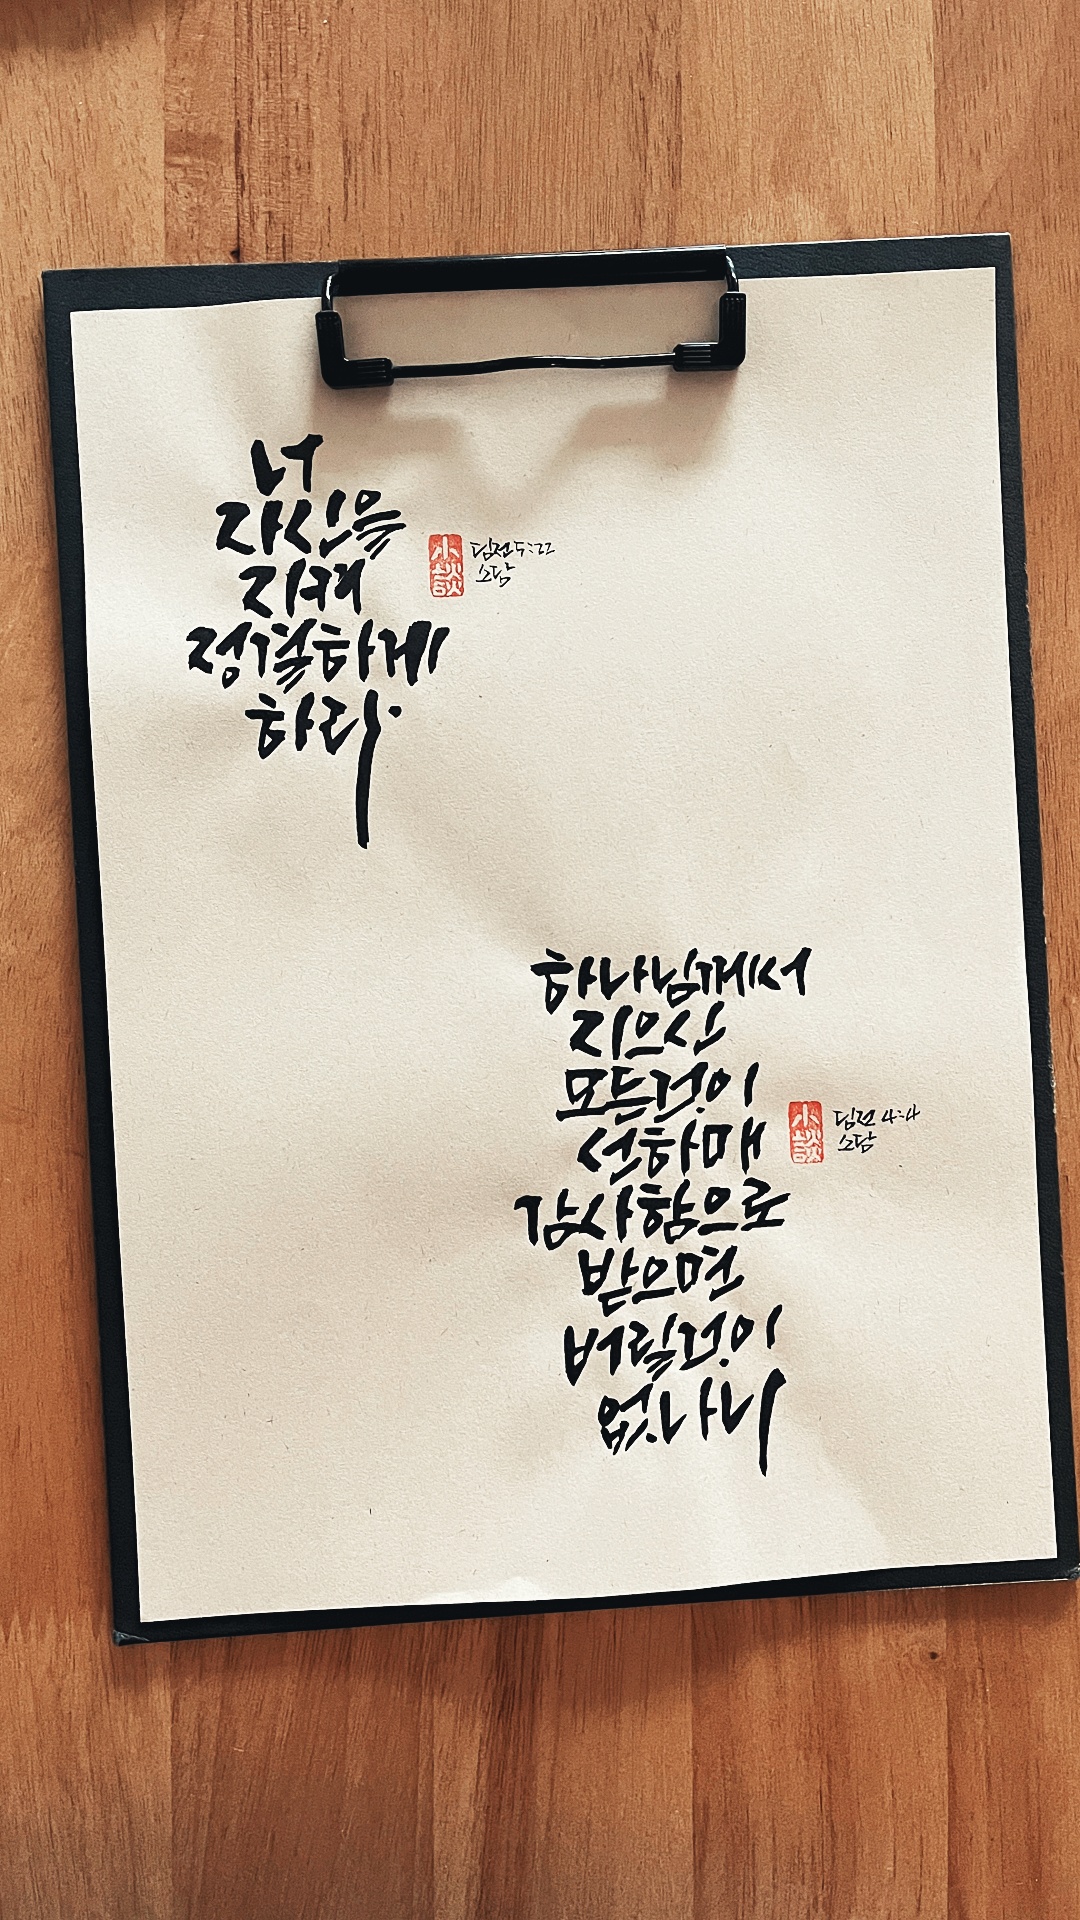 너
자신을
지켜
정결하게
하라.
小談
딤전 5:22
소담
하나님께서
지으신
모든것이
선하매
감사함으로
받으면
버릴것이
없나니
小談
딤전 4:4
소담